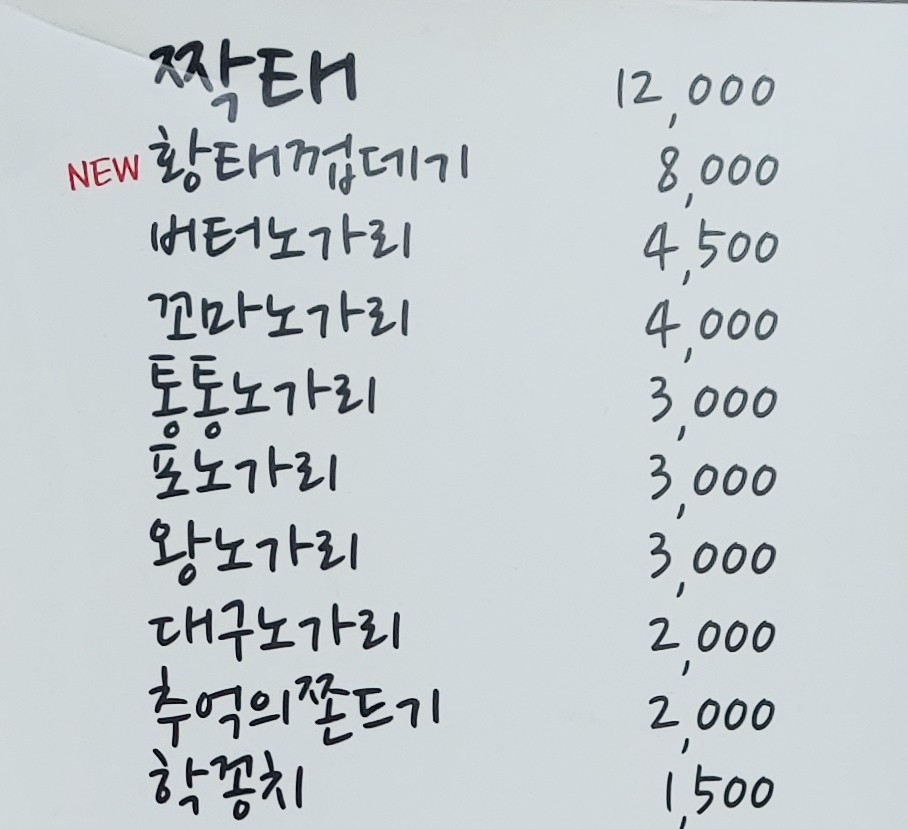 짝태 12,000
NEW 황태껍데기 8,000
버터노가리 4,500
꼬마노가리 4,000
통통노가리 3,000
포노가리 3,000
왕노가리 3,000
대구노가리 2,000
추억의쫀드기 2,000
학꽁치 1,500